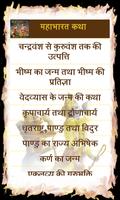 महाभारत कथा
चन्द्रवंश से कुरुवंश तक की
उत्पत्ति
भीष्म का जन्म तथा भीष्म की
प्रतिज्ञा
वेदव्यास के जन्म की कथा
कृपाचार्य तथा द्रोणाचार्य
धृतराष्ट्र,पाण्डु तथा विदुर
पाण्डु का राज्य अभिषेक
कर्ण का जन्म
एकलव्य की गुरुभक्ति